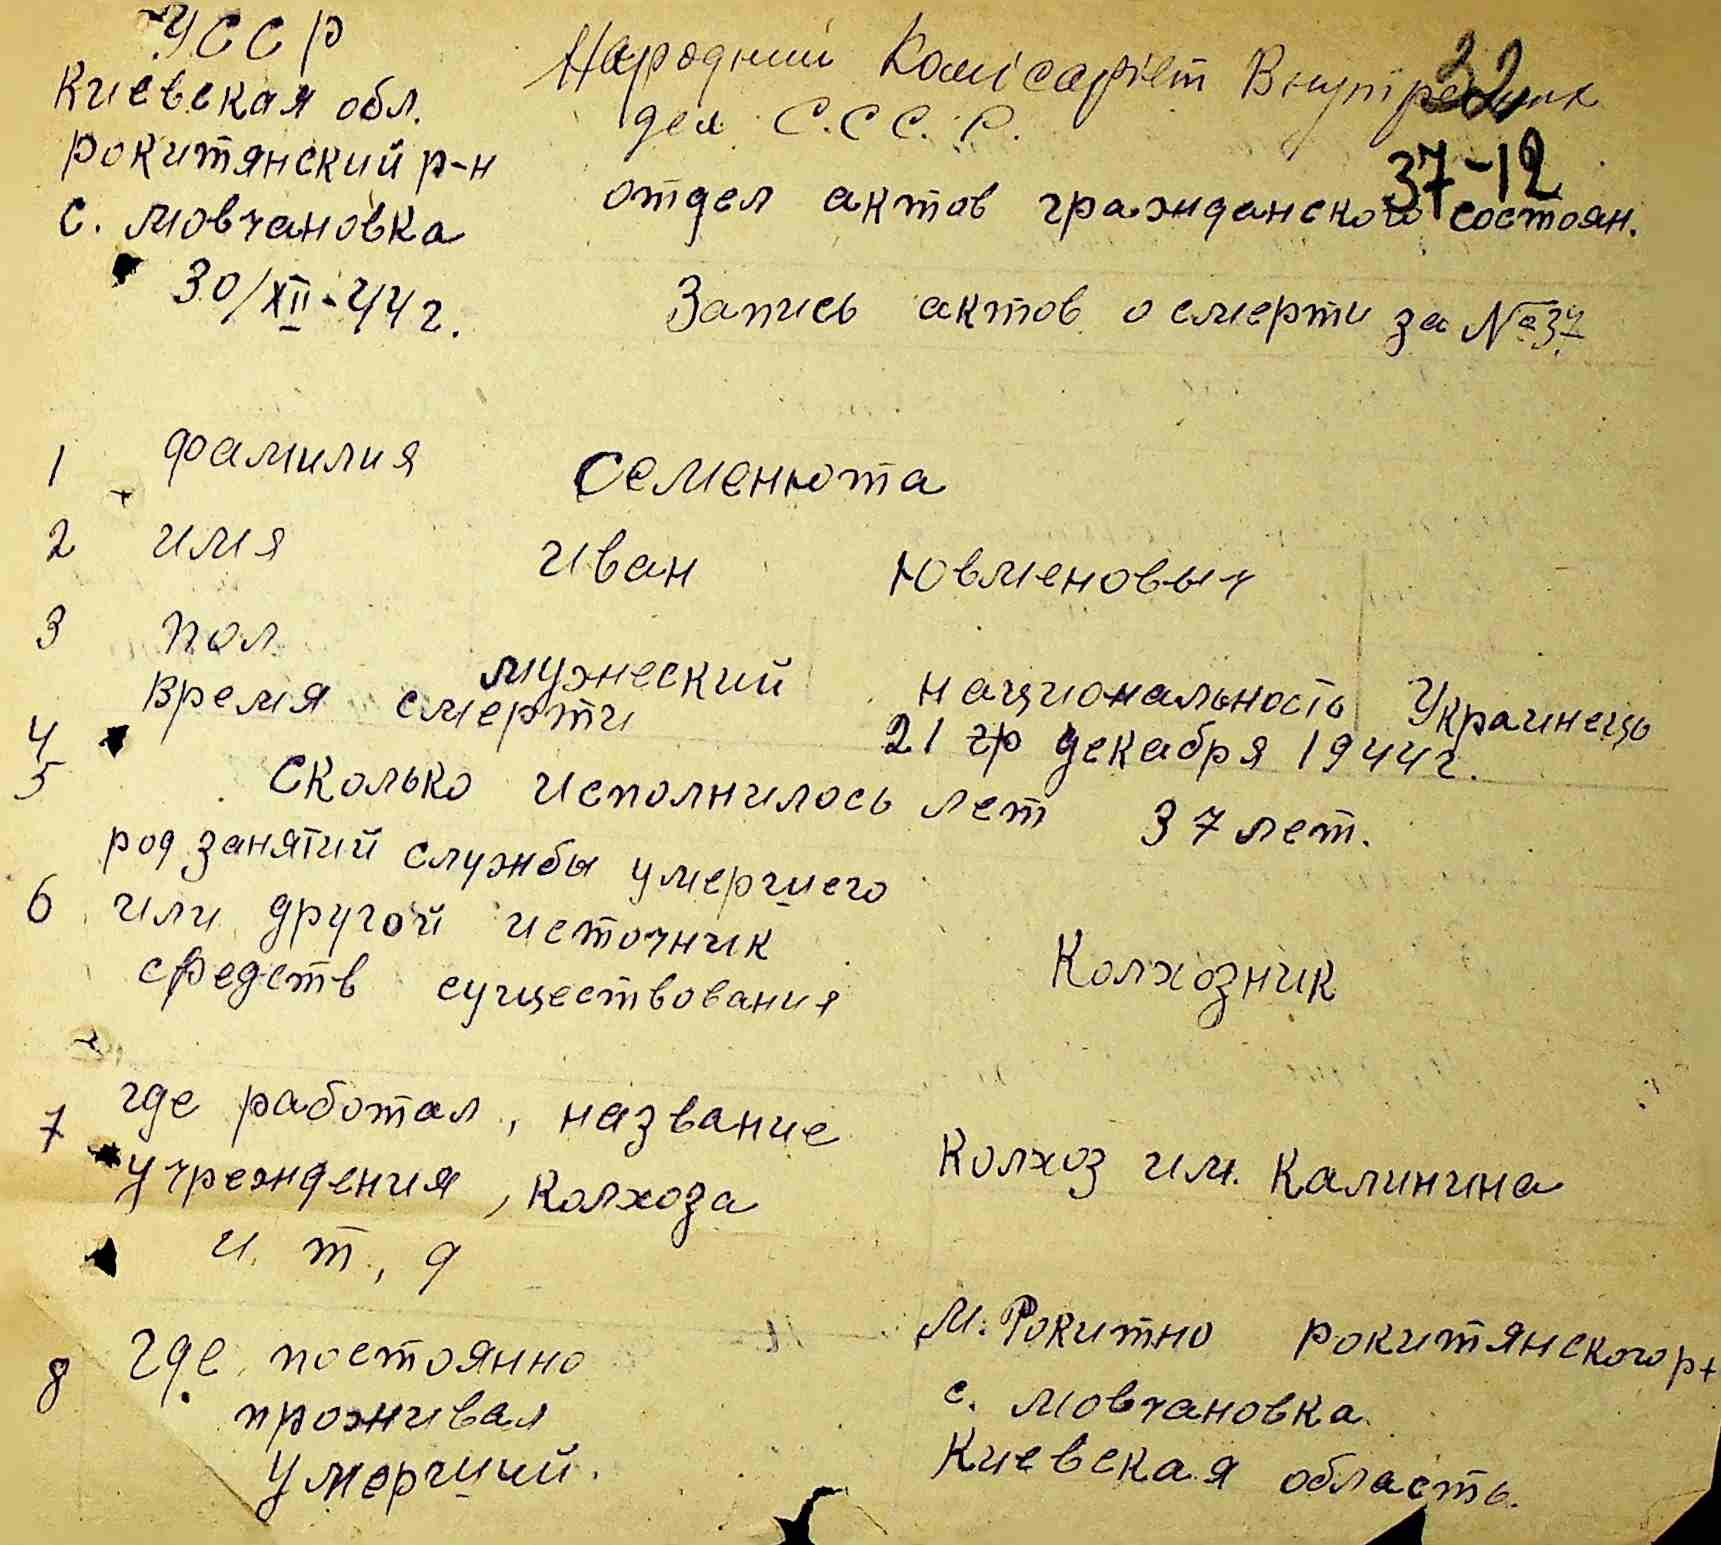 УССР
Киевская обл.
Рокитянский р-н
с. Мовчановка
30/XII-44г.
32
Народний Комісаріет Внутрених
дел С.С.С.Р.
37-12
отдел актов гражданского состоян.
Запись актов о смерти за №34
1 фамилия Семенюта
2 имя Иван Ювменовыч
3 пол мужеский национальность Украинець
4 время смерти 21 гр декабря 1944г.
5 Сколько исполнилось лет 37 лет.
род занятий службы умершего
6 или другой источник
средств существования Колхозник
7 где работал, название
учреждения, колхоза Колхоз им. Калинина
и. т, д
8 где постоянно М. Рокитно рокитянского р-н
проживал с. Мовчановка
умерший. Киевская область.